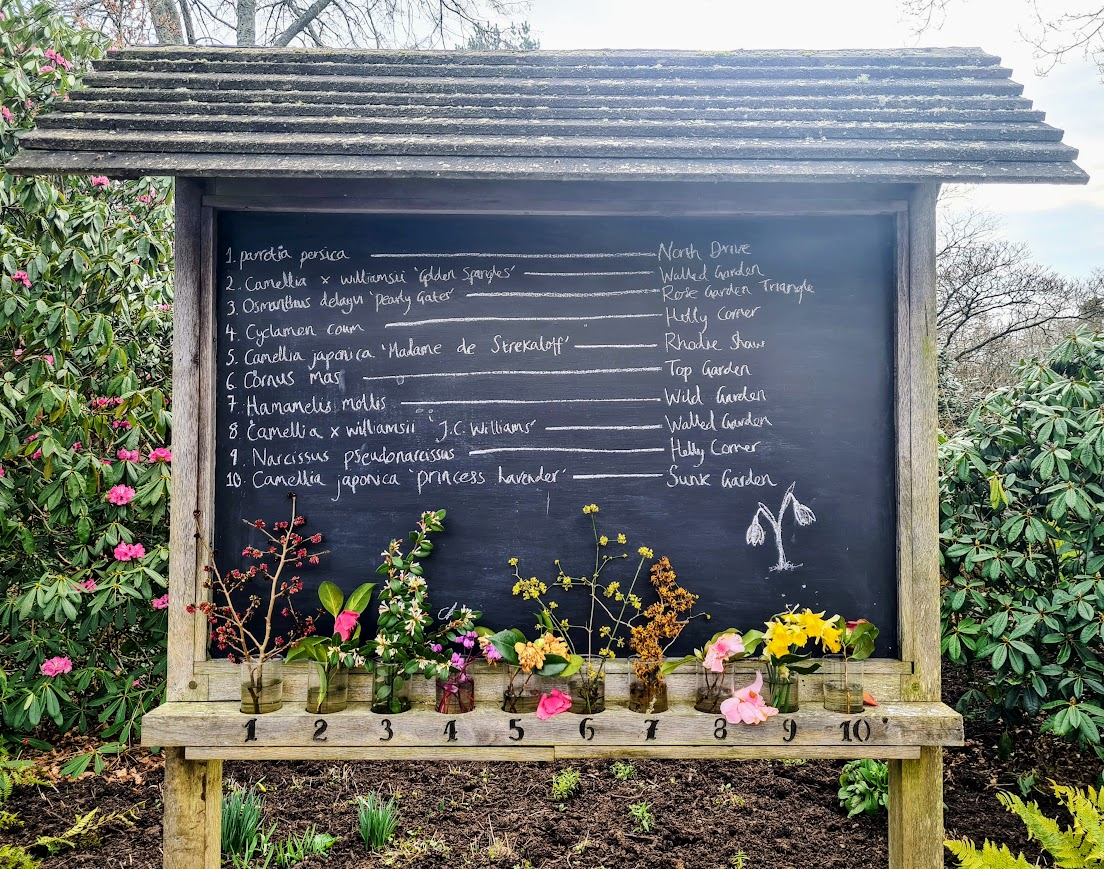 1. parrotia persica North Drive
2. Camellia x williamsii 'Golden Spangles' Walled Garden
3. Osmanthus delayii 'Pearly Gates' Rose Garden Triangle
4. Cyclamen coum Holly Corner
5. Camellia japonica 'Madame de Strekaloff' Rhodie Shaw
6. Cornus mas Top Garden
7. Hamamelis mollis Wild Garden
8. Camellia x williamsii 'J.C. Williams' Walled Garden
9. Narcissus pseudonarcissus Holly Corner
10. Camellia japonica 'princess Lavender' Sunk Garden
1 2 3 4 5 6 7 8 9 10